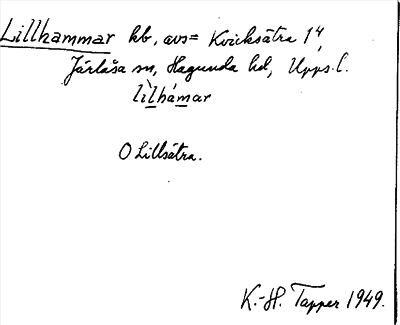 Lillhammar hb, avs= Kvicksätra 1⁴,
Järlåsa sn, Hagunda hd, Upps. l.
lìlhámar
O Lillsätra.
K.-H. Tapper 1949.